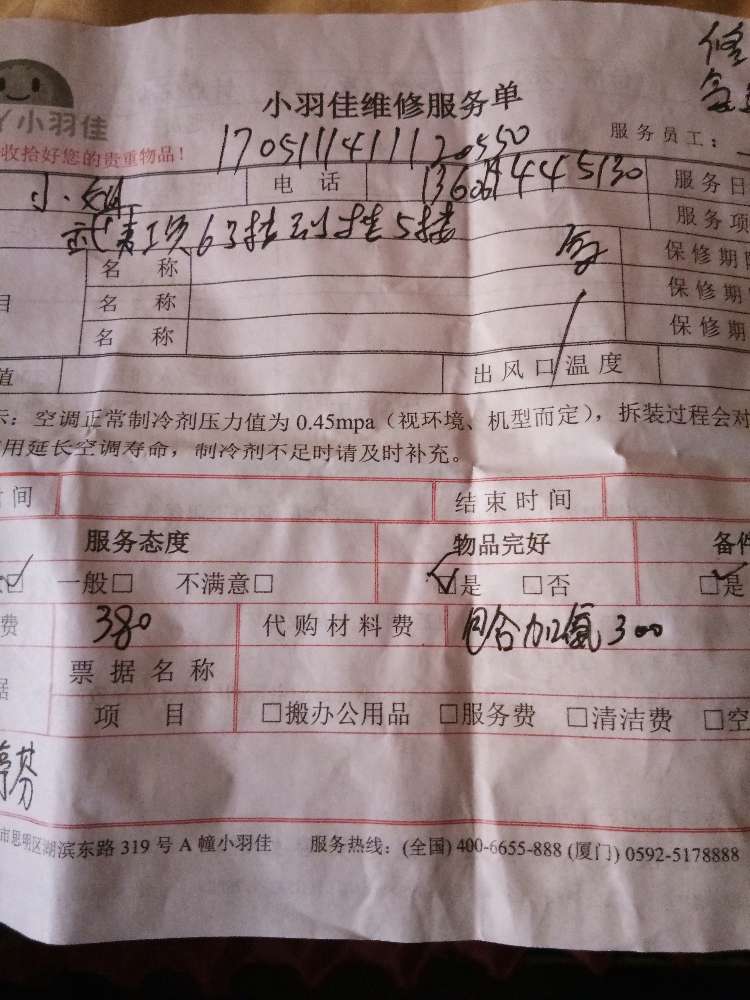 修
小羽佳维修服务单
小羽佳
17051114111120550
服务员工：
收拾好您的贵重物品！
电 话
服务日
服务项
名 称
保修期
目 名 称
保修期
名 称
保修期
值 出风口温度
示：空调正常制冷剂压力值为 0.45mpa（视环境、机型而定），拆装过程会对
用延长空调寿命，制冷剂不足时请及时补充。
时间 结束时间
服务态度 物品完好 备件
☑ 一般□ 不满意□ ☑是 □否 ☑是
费 380 代购材料费 包含加氨300
据 票据名称
项 目 □搬办公用品 □服务费 □清洁费 □空
芬
市思明区湖滨东路 319 号 A 幢小羽佳 服务热线：(全国) 400-6655-888 (厦门) 0592-5178888